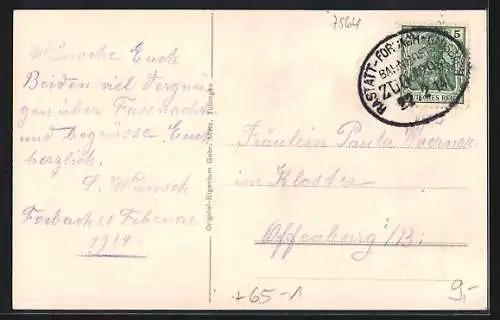 7564
5
RASTATT-FORBACH-
BAHNPOST
ZUG
DEUTSCHES REICH
Wünsche Euch
Beiden viel Vergnü-
gen über Fassnacht
und begrüsse Euch
herzlich.
L. Wunsch
Forbach 21 Februar
1914
Original-Eigentum Gebr. Metz, Tübingen
Fräulein Paula Woerner
im Kloster
Offenburg i/B.
+65-1
9.-